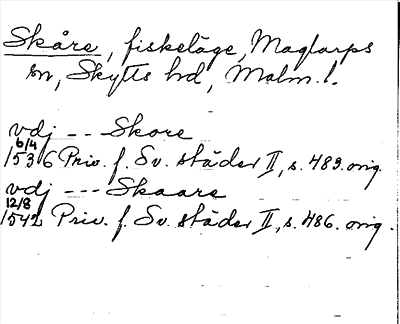 Skåre, fiskeläge, Maglarps
sn, Skytts hd, Malm. l.
vdj --- Skore
6/4
1536 Priv. f. Sv. städer II, s. 483. orig.
vdj --- Skaare
12/8
1542 Priv. f. Sv. städer II, s. 486. orig.